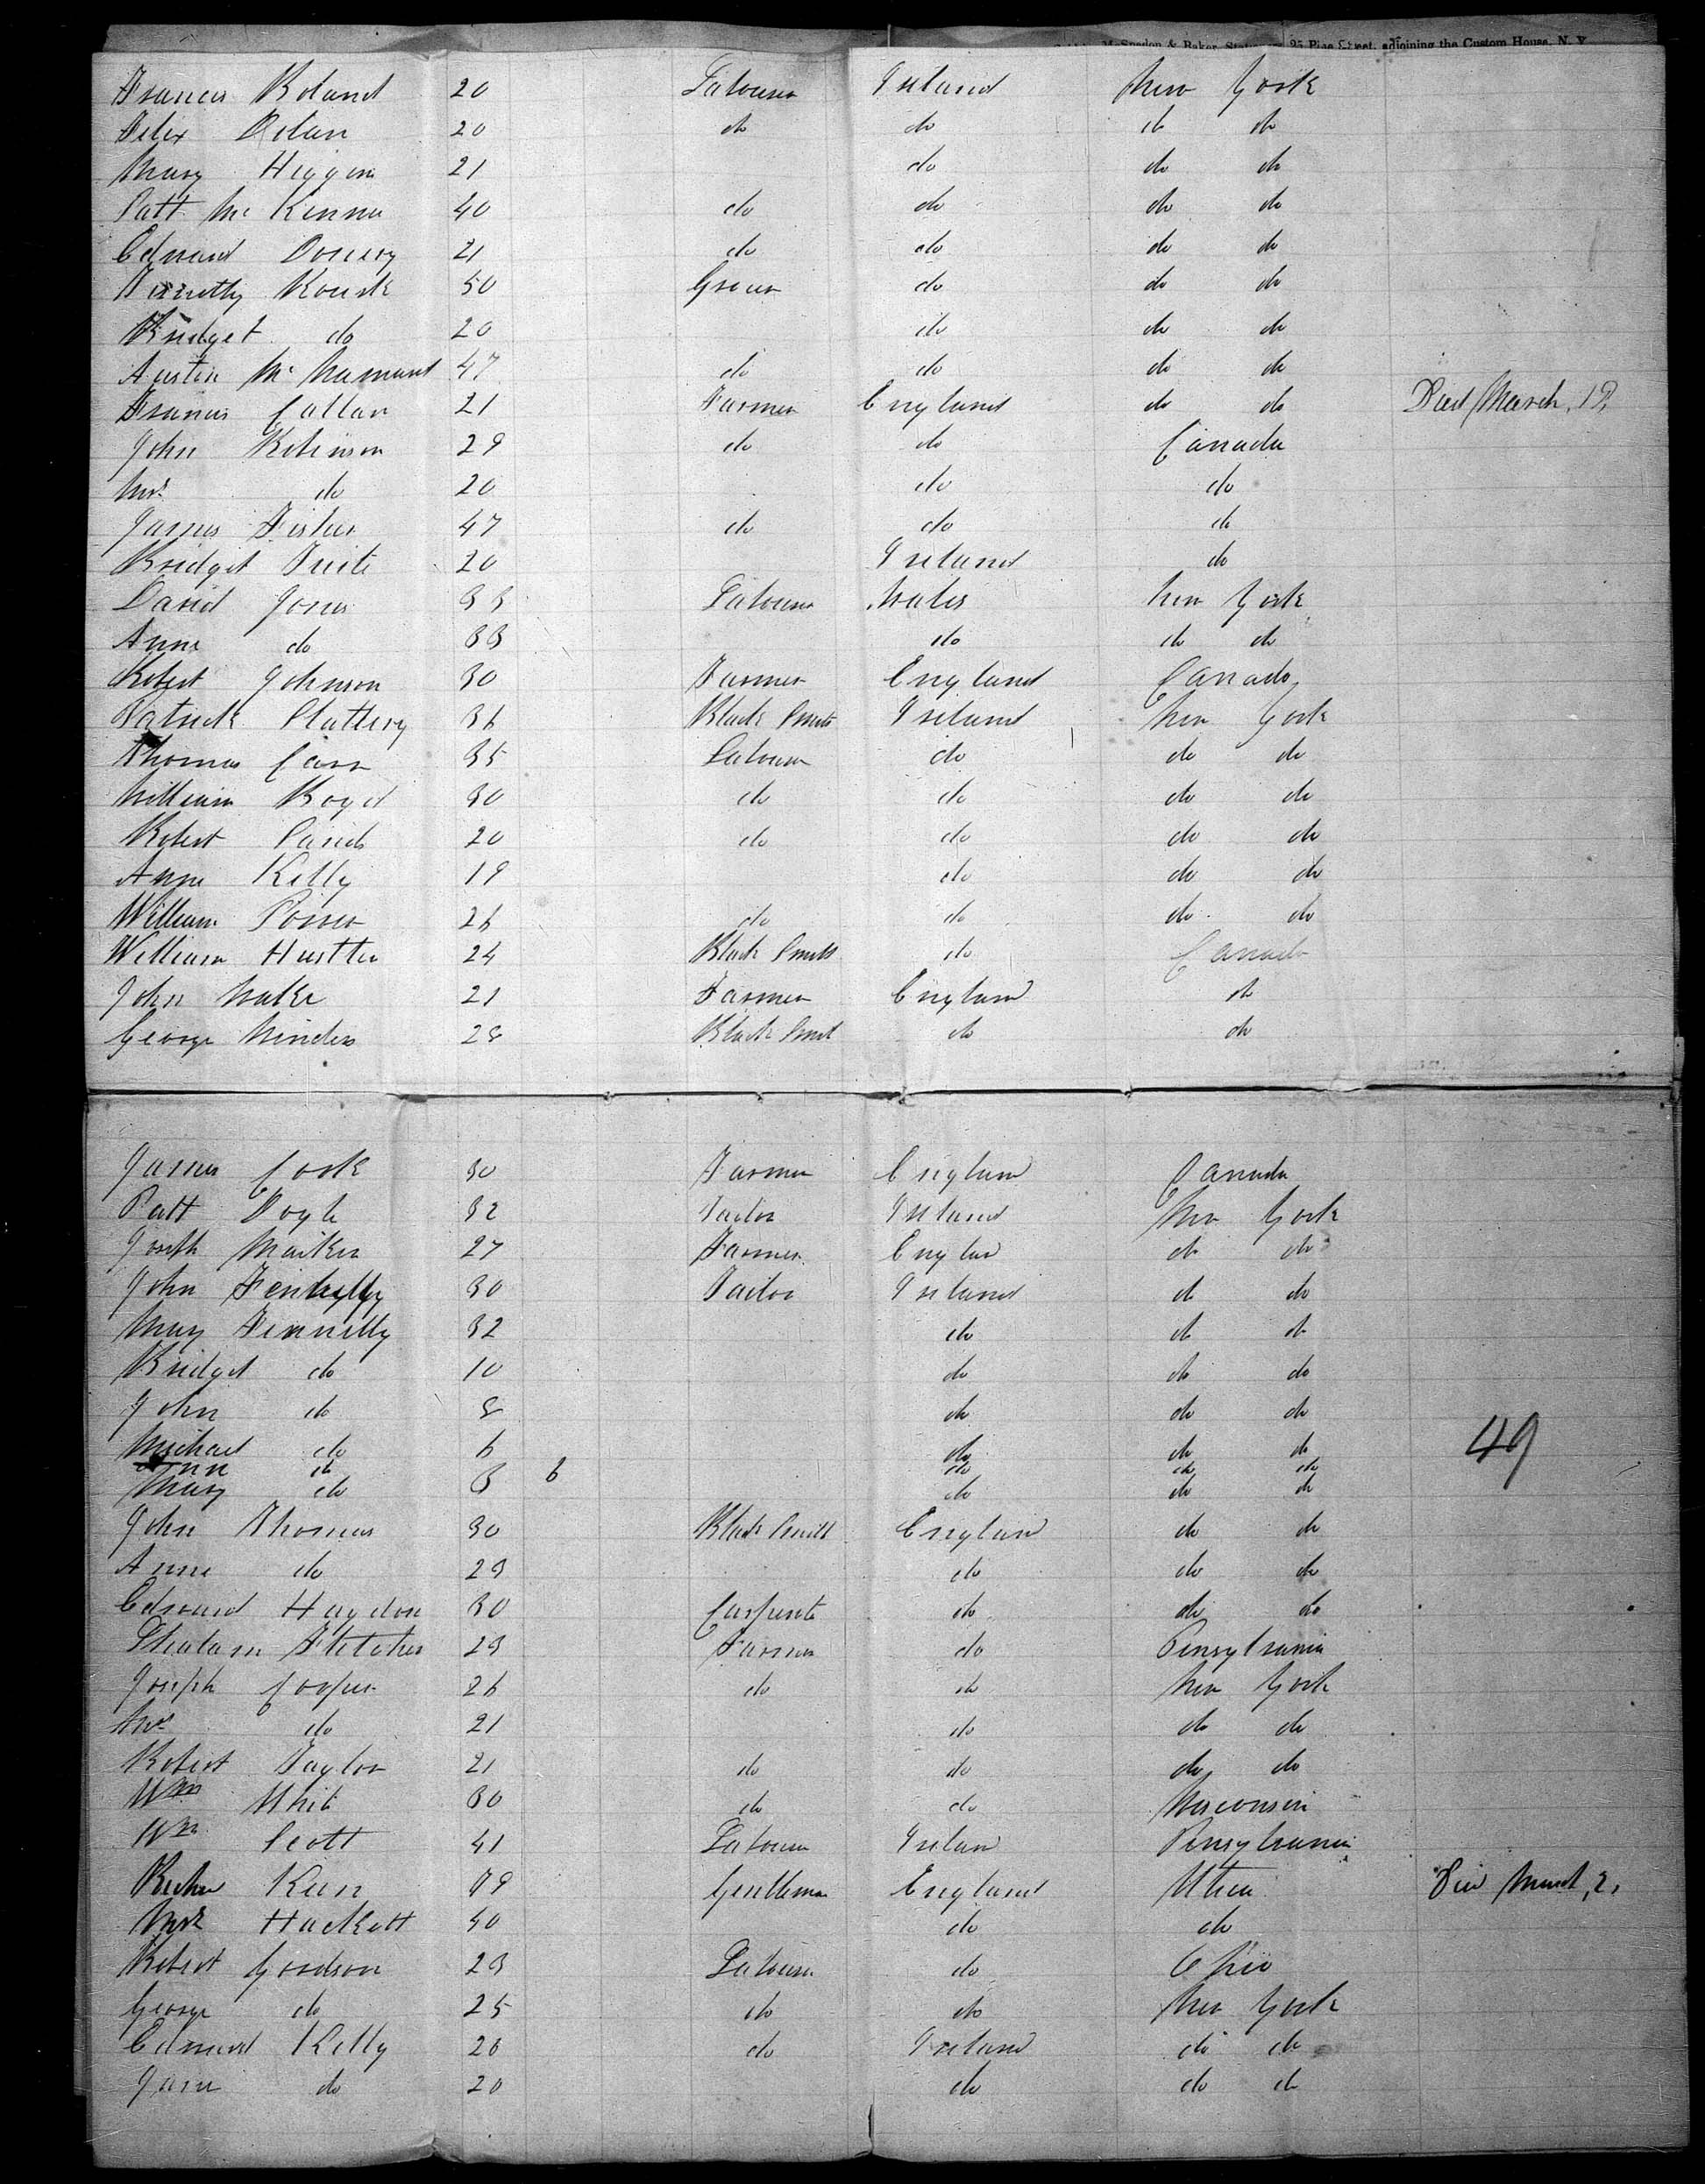 & Baker, 25 Pine Street, adjoining the Custom House, N. Y.
Francis Boland 20 Labourer Ireland New York
Felix Dolan 20 do do do do
Mary Higgins 21 do do do
Patt Mc Kenna 40 do do do do
Edward 21 do do do do
Timothy Rourk 50 Grocer do do do
Bridget do 20 do do do
Austin Mc Namara 47 do do do do
Francis Callan 21 Farmer England do do Died March, 19,
John Robinson 29 do do Canada
Mrs do 20 do do
James Fisher 47 do do do
Bridget 20 Ireland do
David Jones 33 Labourer Wales New York
Anne do 33 do do do
Robert Johnson 30 Farmer England Canada
Patrick Slattery 36 Black Smith Ireland New York
Thomas Carr 35 Labourer do do do
William Boyd 30 do do do do
Robert 20 do do do do
Anne Kelly 19 do do do
William 26 do do do do
William 24 Black Smith do Canada
John 21 Farmer England do
George 28 Black Smit do do
James Cork 30 Farmer England Canada
Patt Doyle 32 Tailor Ireland New York
Joseph 27 Farmer Englan do do
John Fennelly 30 Tailor Ireland do do
Mary Fennelly 32 do do do
Bridget do 10 do do do
John do 8 do do do
Michael do 6 do do do
Ann do do do do
Mary do 3 6 do do do
49
John Thomas 30 Black Smith England do do
Anne do 23 do do do
Edward Haydon 30 Carpente do do do
Fletcher 23 Farmer do Pensylvania
Joseph Cooper 26 do do New York
do 21 do do do
Robert Taylor 21 do do do do
Wm Whit 30 do do Wisconsin
Wm Scott 41 Labourer Irelan Pensylvania
49 Gentleman England Utica Died March, 2,
Mrs Hackett 40 do do
Robert Goodson 23 Labourer do Ohio
George do 25 do do New York
Edward Kelly 20 do Ireland do do
Jane do 20 do do do